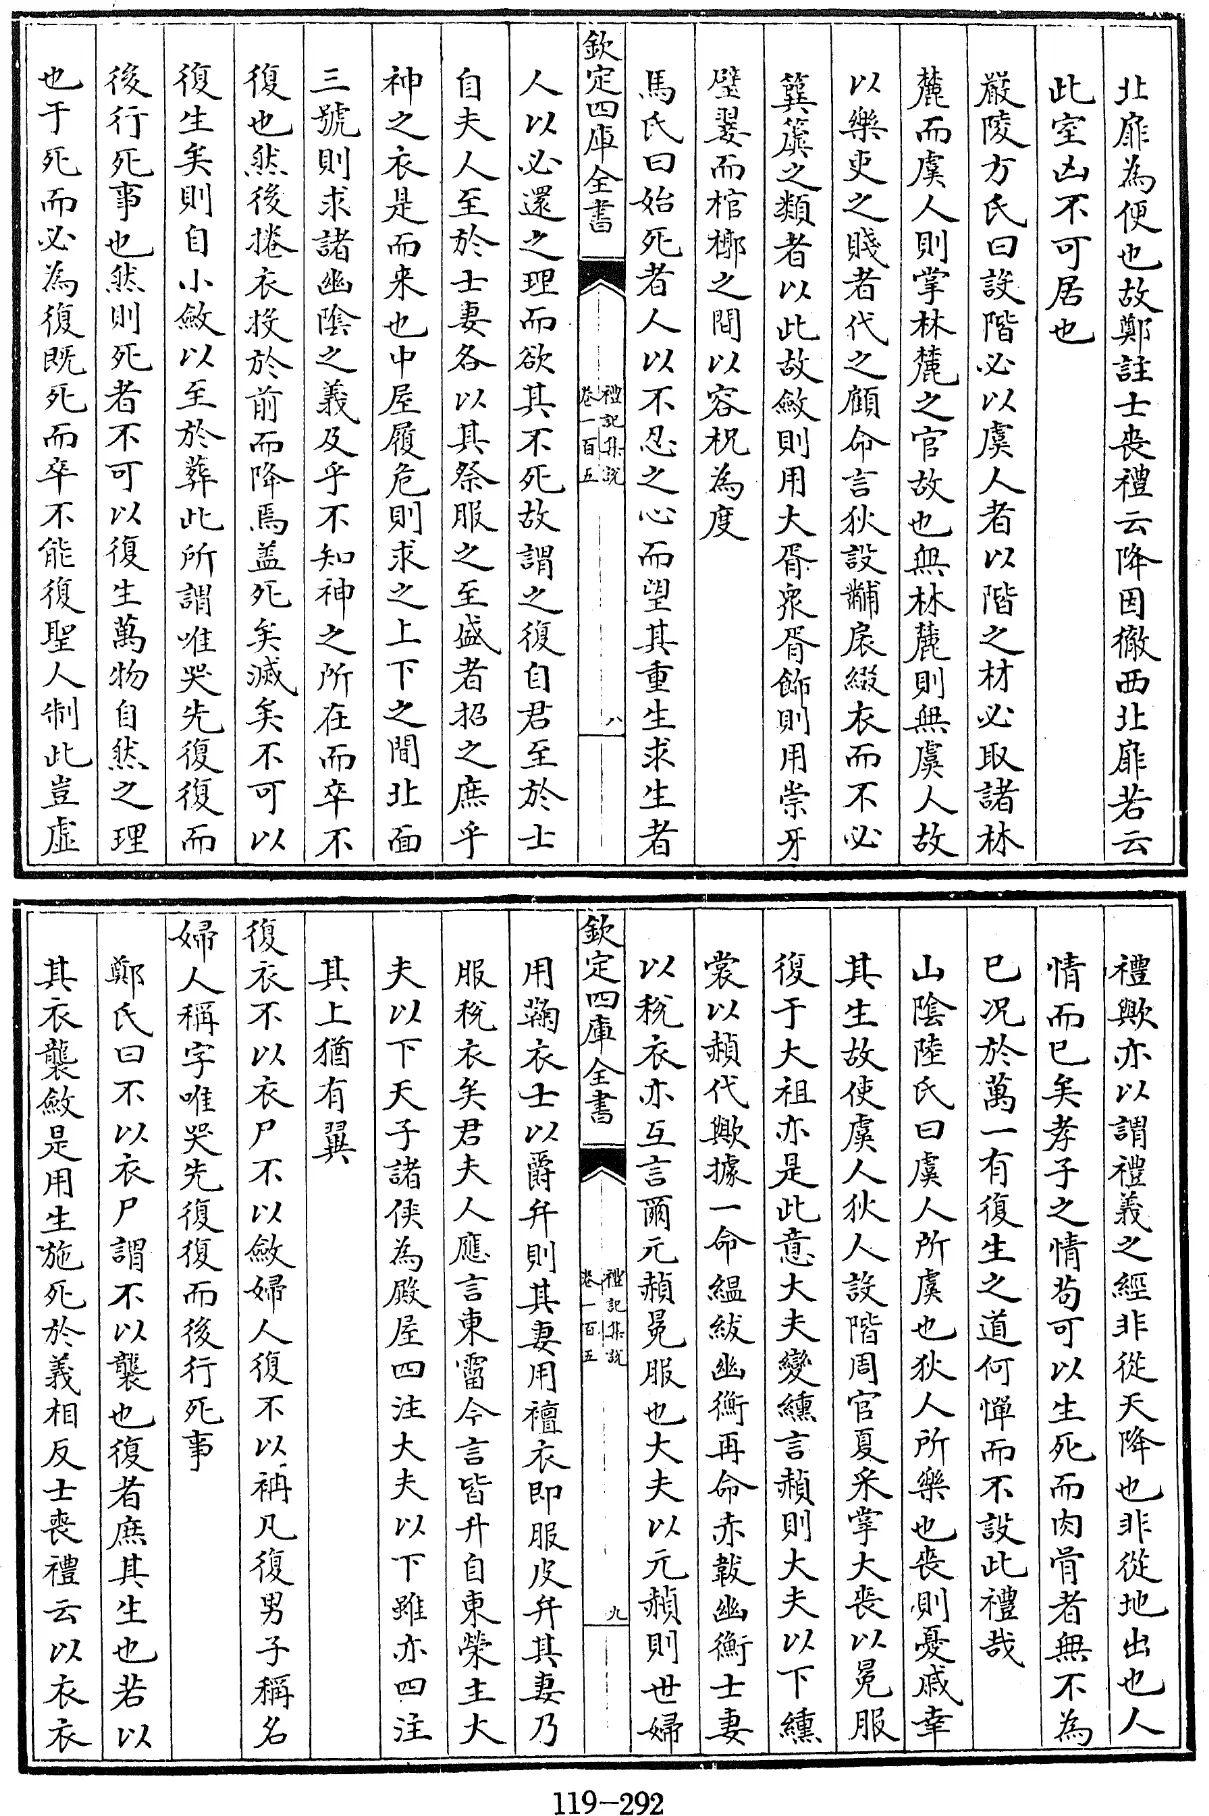 北扉為便也故鄭註士喪禮云降因徹西北扉若云
此室凶不可居也
嚴陵方氏曰設階必以虞人者以階之材必取諸林
麓而虞人則掌林麓之官故也無林麓則無虞人故
以樂吏之賤者代之顧命言狄設黼扆綴衣而不必
簨簴之類者以此故斂則用大胥衆胥飾則用崇牙
璧翣而棺槨之間以容柷為度
馬氏曰始死者人以不忍之心而望其重生求生者
欽定四庫全書
禮記集說
卷一百五
八
人以必還之理而欲其不死故謂之復自君至於士
自夫人至於士妻各以其祭服之至盛者招之庶乎
神之衣是而来也中屋履危則求之上下之間北面
三號則求諸幽陰之義及乎不知神之所在而卒不
復也然後捲衣投於前而降焉盖死矣滅矣不可以
復生矣則自小斂以至於葬此所謂唯哭先復復而
後行死事也然則死者不可以復生萬物自然之理
也于死而必為復既死而卒不能復聖人制此豈虛
禮歟亦以謂禮義之經非從天降也非從地出也人
情而已矣孝子之情苟可以生死而肉骨者無不為
已况於萬一有復生之道何憚而不設此禮哉
山陰陸氏曰虞人所虞也狄人所樂也喪則憂戚幸
其生故使虞人狄人設階周官夏采掌大喪以冕服
復于大祖亦是此意大夫變纁言赬則大夫以下纁
裳以赬代歟據一命緼紱幽衡再命赤韍幽衡士妻
以稅衣亦互言爾元赬冕服也大夫以元赬則世婦
欽定四庫全書
禮記集說
卷一百五
九
用鞠衣士以爵弁則其妻用襢衣即服皮弁其妻乃
服稅衣矣君夫人應言東霤今言皆升自東榮主大
夫以下天子諸侯為殿屋四注大夫以下雖亦四注
其上猶有翼
復衣不以衣尸不以斂婦人復不以袡凡復男子稱名
婦人稱字唯哭先復復而後行死事
鄭氏曰不以衣尸謂不以襲也復者庶其生也若以
其衣襲斂是用生施死於義相反士喪禮云以衣衣
119-292